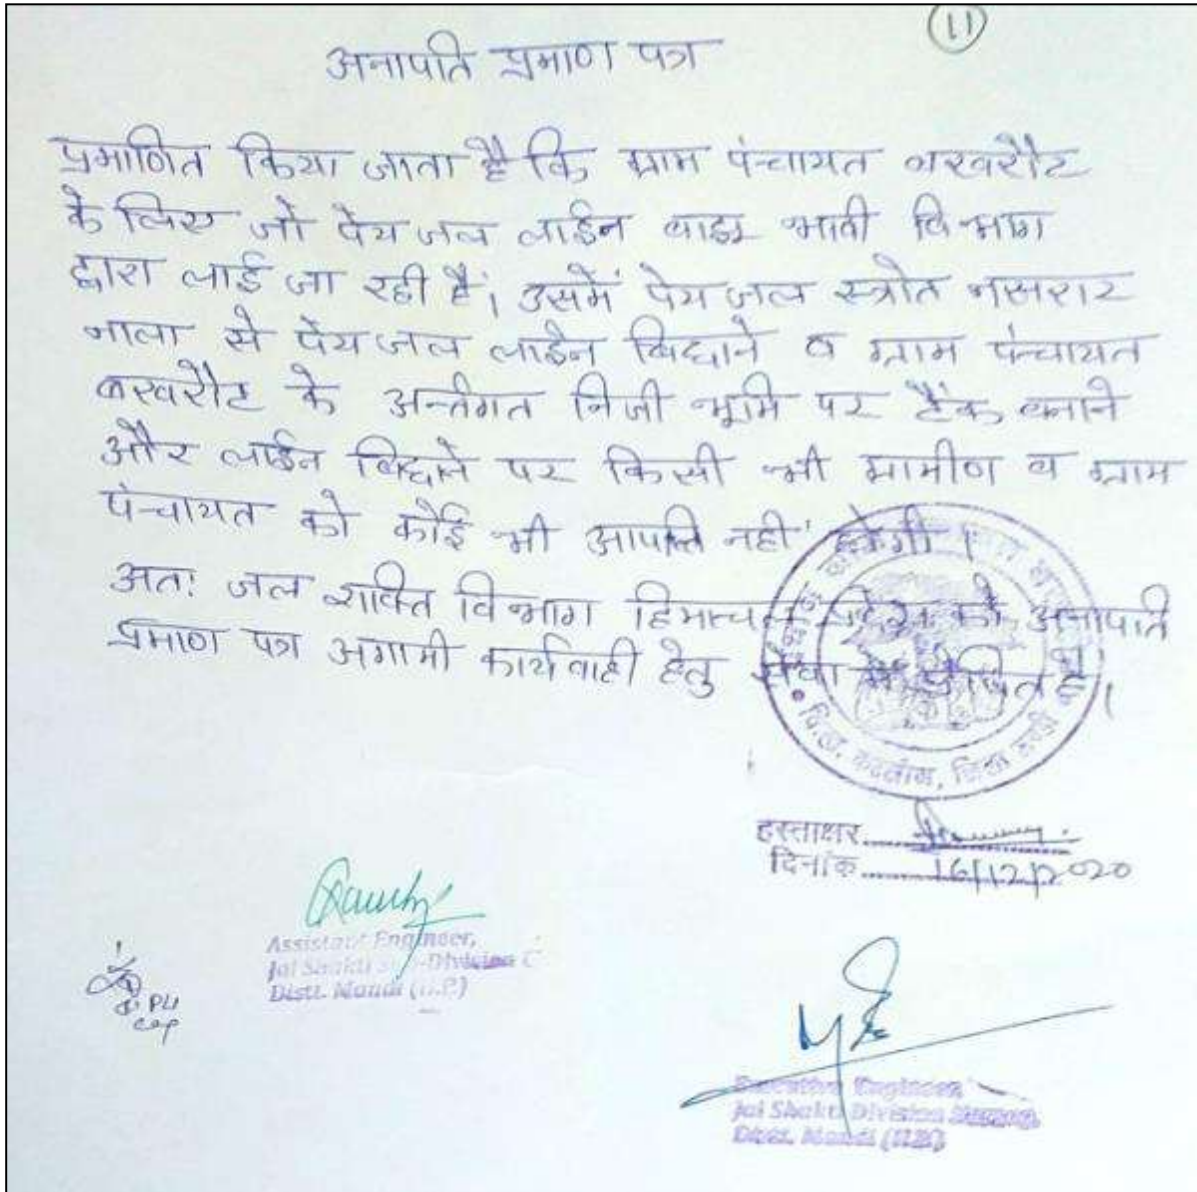 (11)
अनापति प्रमाण पत्र
प्रमाणित किया जाता है कि ग्राम पंचायत बखरौट
के लिए जो पेयजल लाईन वाह्य भाती विभाग
द्वारा लाई जा रही है, उसमें पेयजल स्त्रोत
नाला से पेयजल लाईन बिछाने व ग्राम पंचायत
बखरौट के अर्न्तगत निजी भूमि पर टैंक बनाने
और लाईन बिछाने पर किसी भी ग्रामीण व ग्राम
पंचायत को कोई भी आपति नहीं होगी।
अतः जल शक्ति विभाग हिमाचल प्रदेश को अनापति
प्रमाण पत्र अगामी कार्यवाही हेतु सेवा में प्रेषित है।
जिला मण्डी
हस्ताक्षर
दिनांक 16/12/2020
Assistant Engineer,
Jal Shakti Sub-Division
Distt. Mandi (H.P.)
Executive Engineer,
Jal Shakti Division
Distt. Mandi (H.P.)